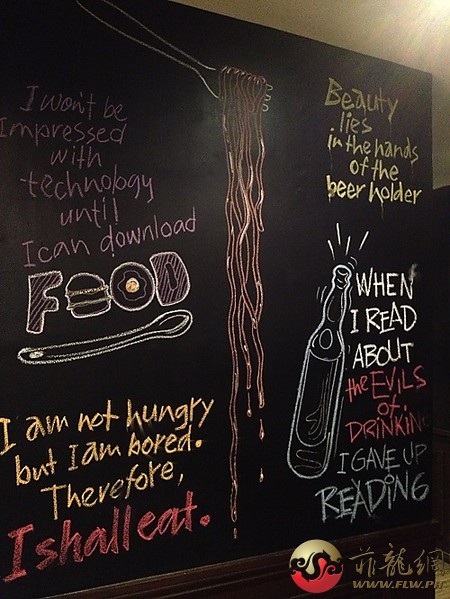 I won't be
Impressed
with
technology
until
I can download
FOOD
I am not hungry
but I am bored.
Therefore,
I shall eat.
Beauty
lies
in the hands
of the
beer holder
WHEN
I READ
ABOUT
the EVILS
of.
DRINKING
I GAVE UP
READING
菲龍網
WWW.FLW.PH